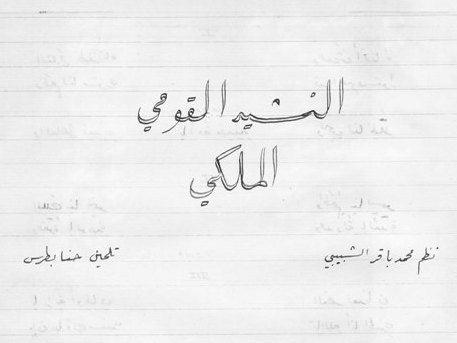 النشيد القومي
الملكي
نظم محمد باقر الشبيبي
تلحين حنا بطرس